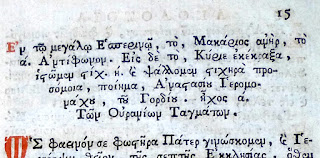 15
Ἐν τῷ μεγάλῳ Ἑσπερινῷ, τὸ, Μακάριος ἀνὴρ, τὸ
α. Ἀντίφωνον. Εἰς δὲ τὸ, Κύριε ἐκέκραξα,
ἱστῶμεν στίχ. η. καὶ ψάλλομεν στιχηρὰ προ-
σόμοια, ποίημα, Ἀναστασίου Ἱερομο-
νάχου, τοῦ Γορδίου. ἦχος α.
Τῶν Οὐρανίων Ταγμάτων.
Ὡς φαεινόν σε φωστῆρα Πάτερ γινώσκομεν, καὶ Γε-
τῆς σεπτῆς Ἐκκλησίας,